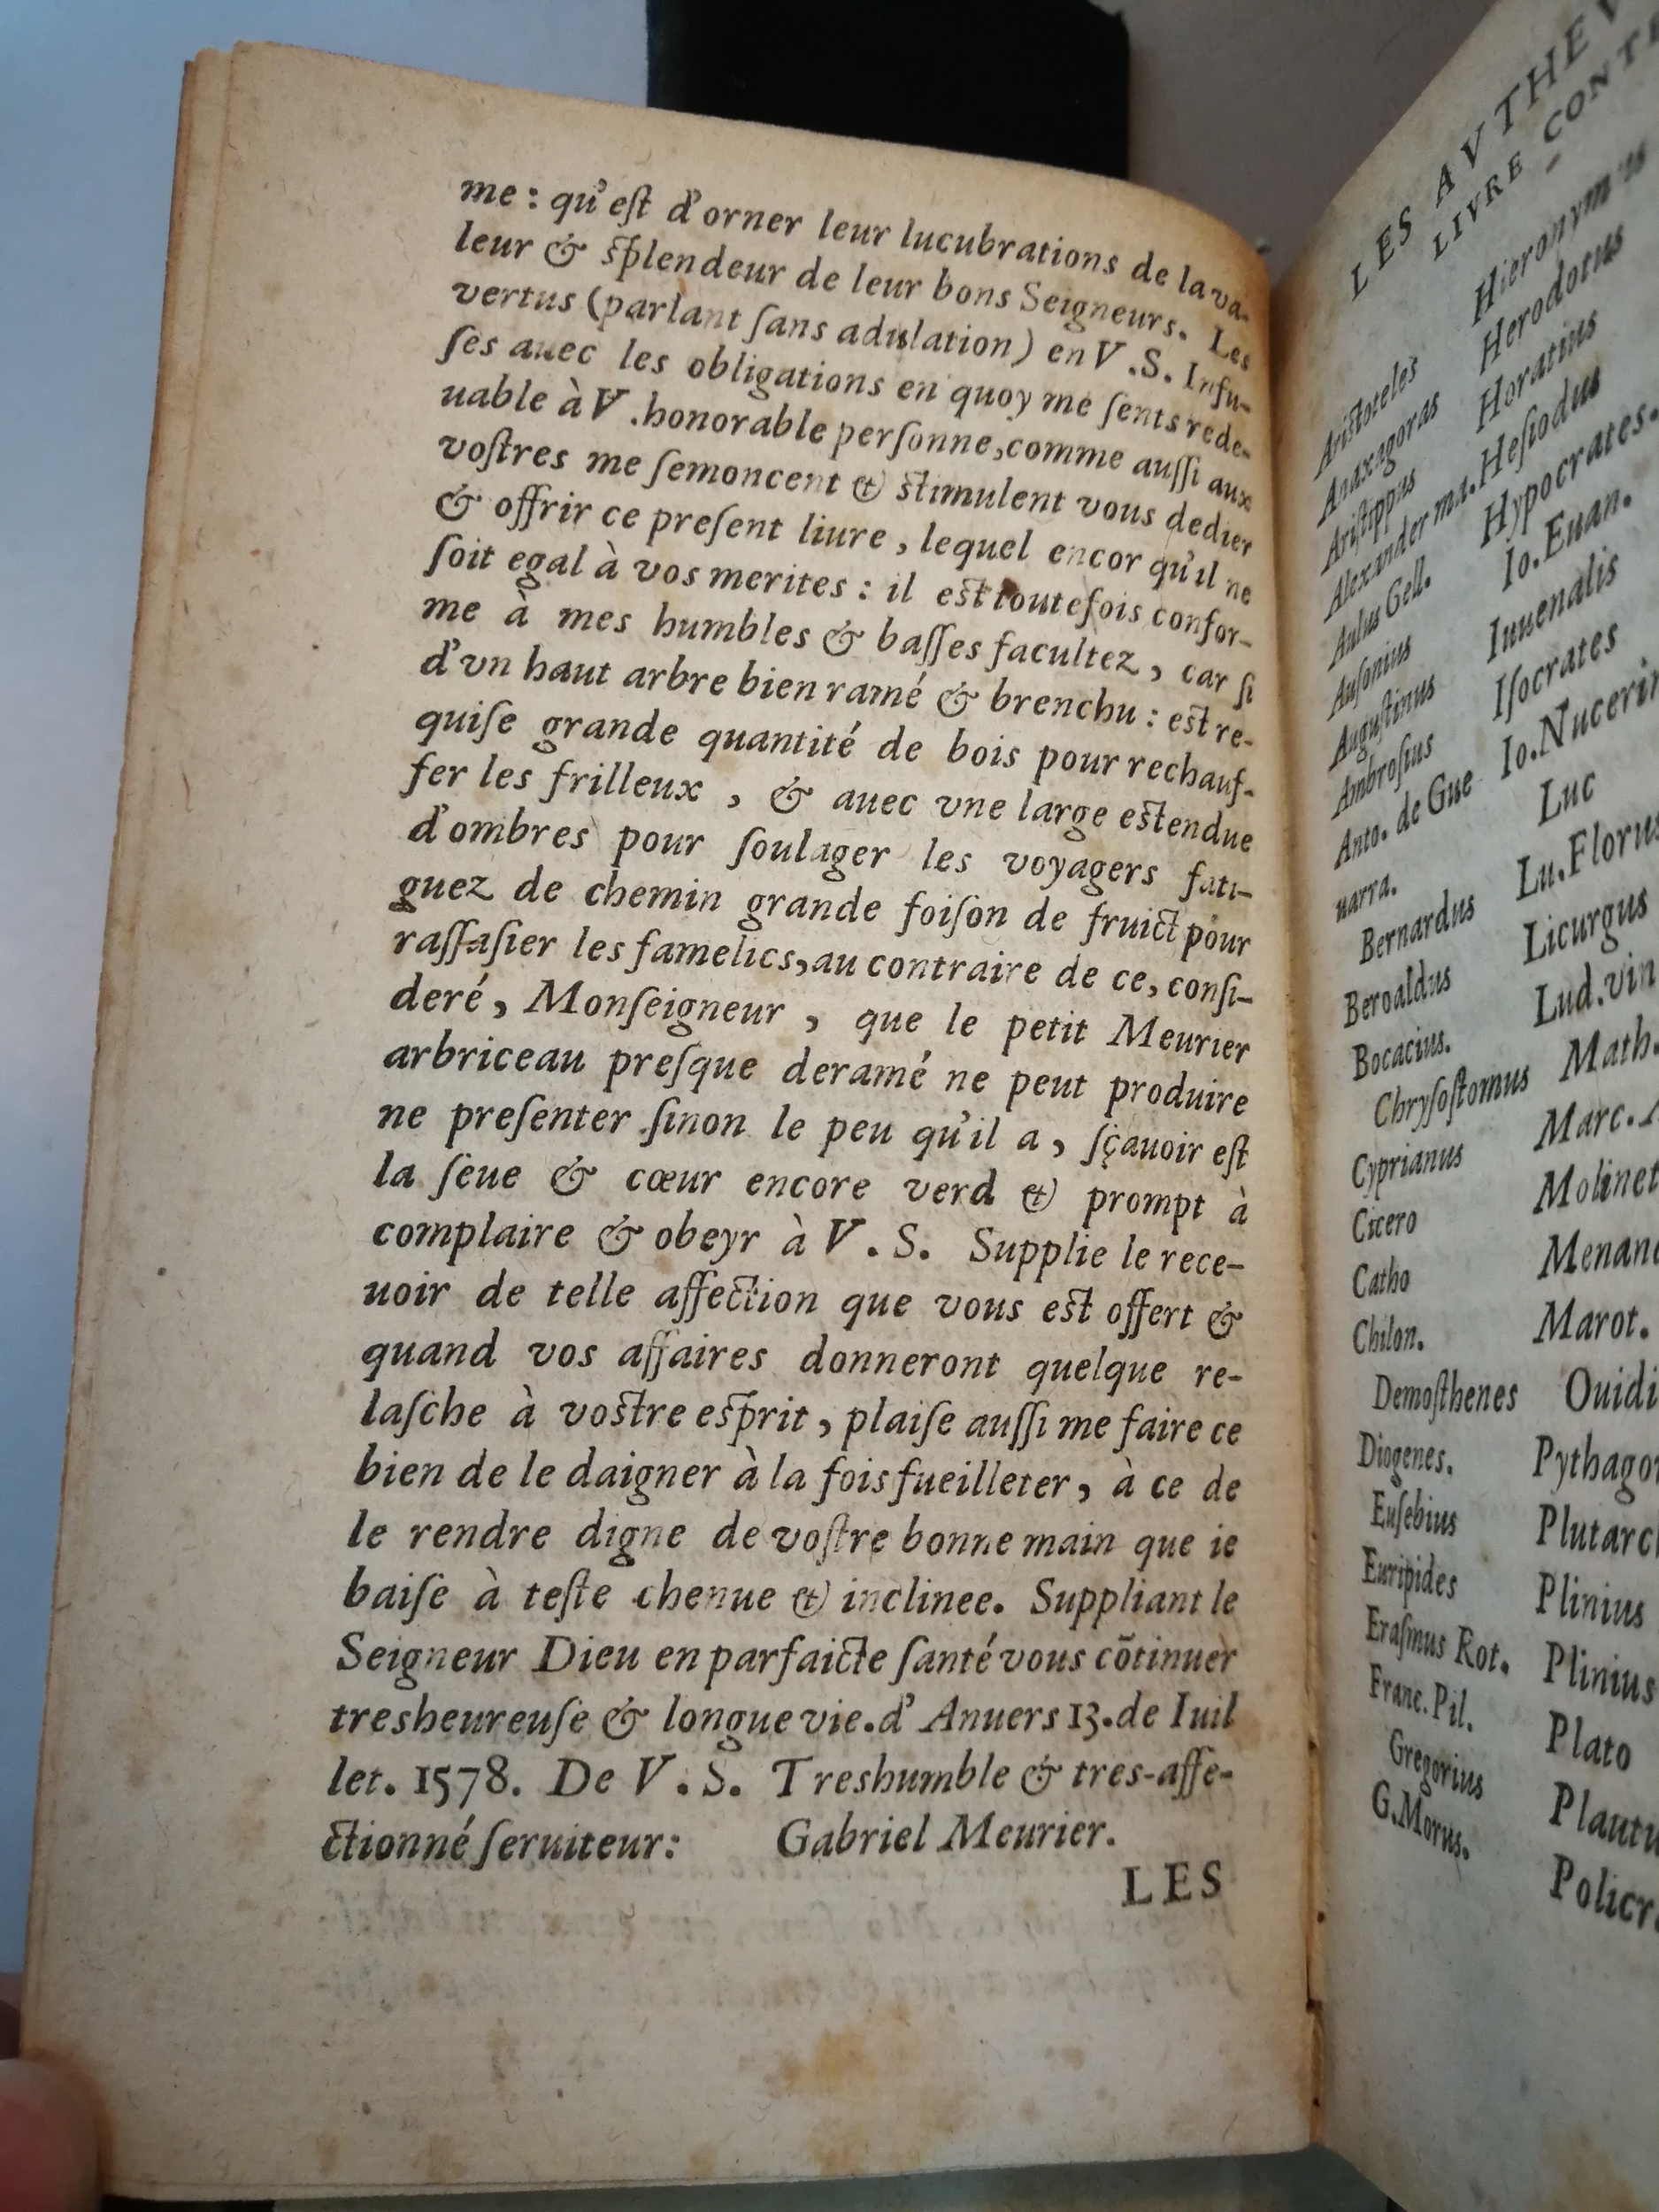 me : qu'eſt d'orner leur lucubrations de la va-
leur & ſplendeur de leur bons Seigneurs. Les
vertus (parlant ſans adulation) en V .S. Infu-
ſes auec les obligations en quoy me ſents rede-
uable à V .honorable perſonne,comme auſſi aux
voſtres me ſemoncent & ſtimulent vous dedier
& offrir ce preſent liure , lequel encor qu'il ne
ſoit egal à vos merites : il eſt toutefois confor-
me à mes humbles & baſſes facultez , car ſi
d'vn haut arbre bien ramé & brenchu : eſt re-
quiſe grande quantité de bois pour rechauf-
fer les frilleux , & auec vne large eſtendue
d'ombres pour ſoulager les voyagers fati-
guez de chemin grande foiſon de fruict pour
raſſaſier les famelics,au contraire de ce, conſi-
deré , Monſeigneur , que le petit Meurier
arbriceau preſque deramé ne peut produire
ne preſenter ſinon le peu qu'il a , ſçauoir eſt
la ſeue & cœur encore verd & prompt à
complaire & obeyr à V . S. Supplie le rece-
uoir de telle affection que vous eſt offert &
quand vos affaires donneront quelque re-
laſche à voſtre eſprit , plaiſe auſſi me faire ce
bien de le daigner à la fois fueilleter , à ce de
le rendre digne de voſtre bonne main que ie
baiſe à teſte chenue & inclinee. Suppliant le
Seigneur Dieu en parfaicte ſanté vous cõtinuer
tresheureuſe & longue vie.d' Anuers 13.de Iuil
let. 1578. De V . S. Treshumble & tres-affe-
ctionné ſeruiteur: Gabriel Meurier.
LES
LES AVTHEV
LIVRE CONT
Ariſtoteles
Anaxagoras
Ariſtippus
Alexander ma.
Aulus Gell.
Auſonius
Auguſtinus
Ambroſius
Anto. de Gue
uarra.
Bernardus
Beroaldus
Bocacius.
Chryſoſtomus
Cyprianus
Cicero
Catho
Chilon.
Demoſthenes
Diogenes.
Euſebius
Euripides
Eraſmus Rot.
Franc. Pil.
Gregorius
G.Morus.
Hieronymus
Herodotus
Horatius
Heſiodus
Hypocrates.
Io.Euan.
Iuuenalis
Iſocrates
Io.Nucerin
Luc
Lu.Florus
Licurgus
Lud.vin
Math.
Marc.
Molinet
Menand
Marot.
Ouidi
Pythagor
Plutarch
Plinius
Plinius
Plato
Plautu
Policr